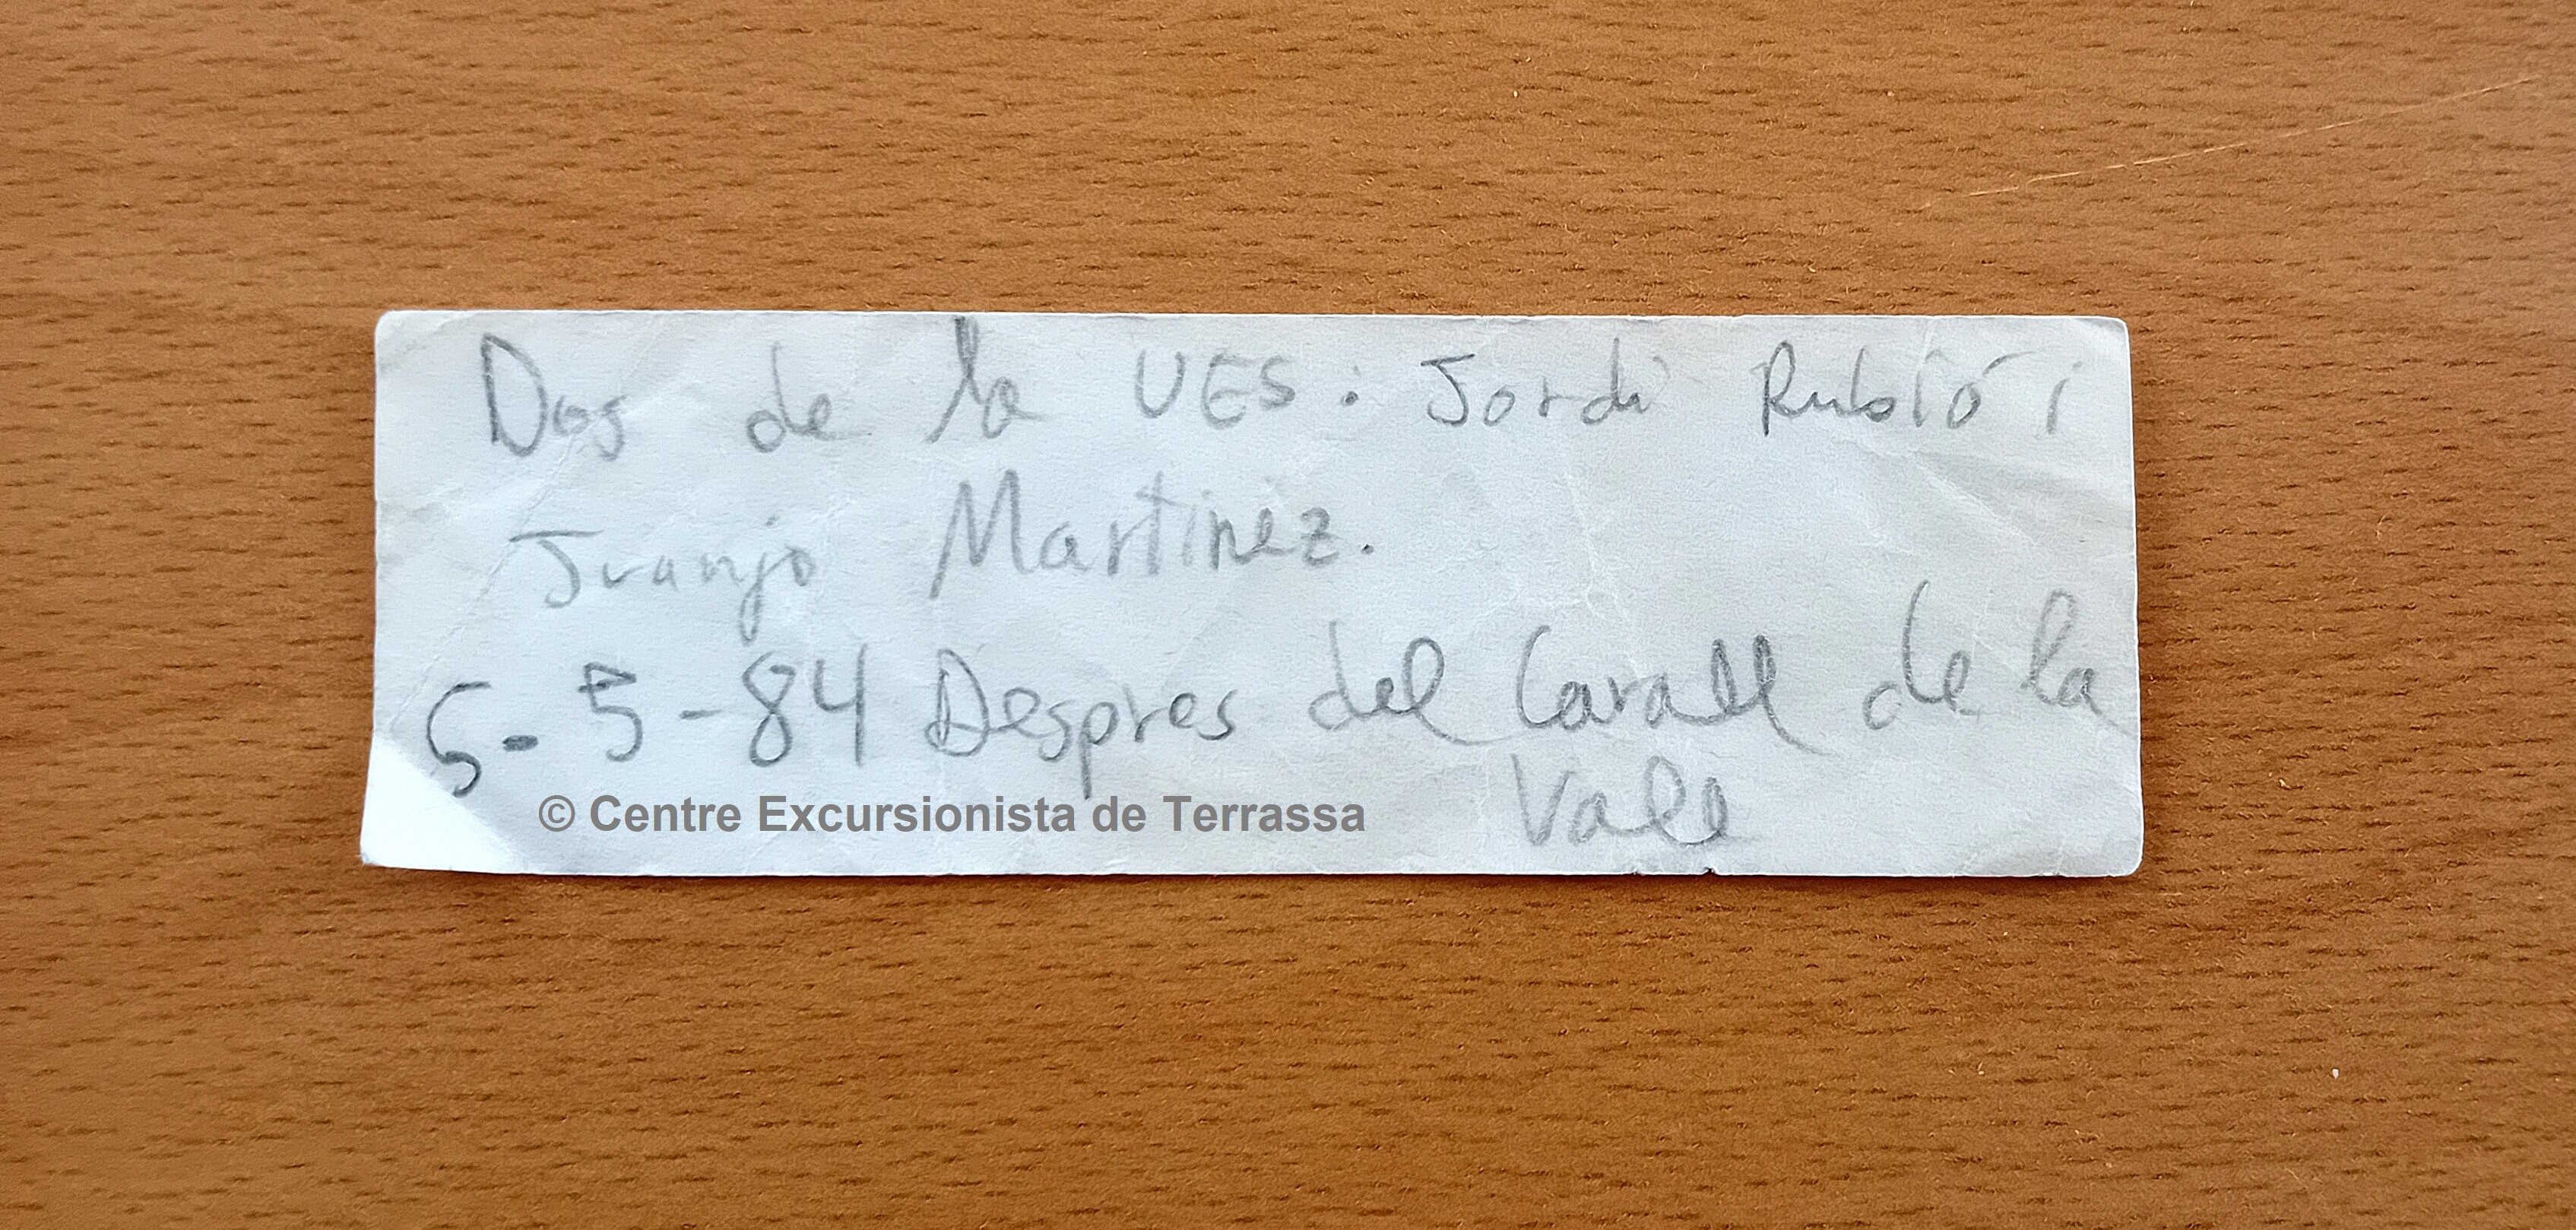 Dos de la UES: Jordi Rubió i
Juanjo Martinez.
5-5-84 Despres del Carall de la
Vall
© Centre Excursionista de Terrassa